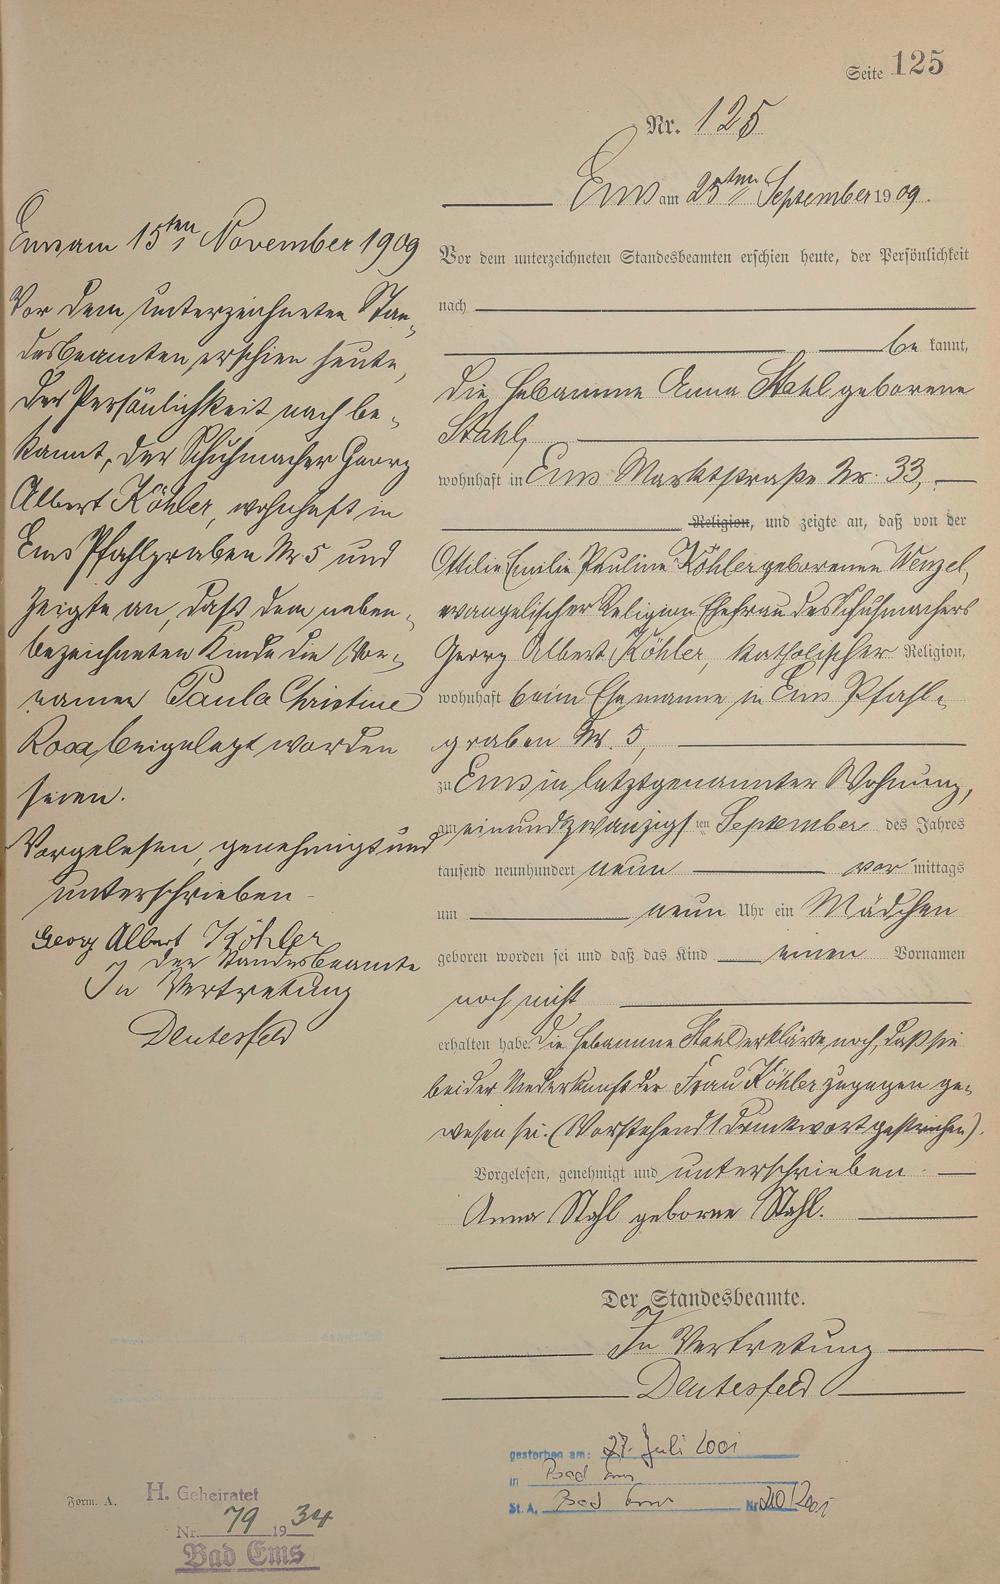 Seite 125
Nr. 125
Ems am 25ten September 1909.
Vor dem unterzeichneten Standesbeamten erschien heute, der Persönlichkeit
nach
be kannt,
die Hebamme Anna Stahl geborene
Stahl,
wohnhaft in Ems Marktstraße Nr. 33,
Religion, und zeigte an, daß von der
Ottilie Emilie Pauline Köhler geborenen Wenzel,
evangelischer Religion Ehefrau des Schuhmachers
Georg Albert Köhler, katholischer Religion,
wohnhaft beim Ehemanne in Ems Pfahl-
graben Nr. 5,
zu Ems in letztgenannter Wohnung,
am einundzwanzigsten September des Jahres
tausend neunhundert neun vor mittags
um neun Uhr ein Mädchen
geboren worden sei und daß das Kind einen Vornamen
noch nicht
erhalten habe. Die Hebamme Stahl erklärte noch, daß sie
bei der Niederkunft der Frau Köhler zugegen ge-
wesen sei. (Vorstehend 1 Druckwort gestrichen).
Vorgelesen, genehmigt und unterschrieben.
Anna Stahl geborne Stahl.
Der Standesbeamte.
In Vertretung
Deutesfeld
gestorben am: 27. Juli 2001
in Bad Ems
St. A. Bad Ems Nr. 210/2001
Ems am 15ten November 1909
Vor dem unterzeichneten Stan-
desbeamten erschien heute,
der Persönlichkeit nach be-
kannt, der Schuhmacher Georg
Albert Köhler, wohnhaft in
Ems Pfahlgraben Nr 5 und
zeigte an, daß dem neben-
bezeichneten Kinde die Vor-
namen Paula Christine
Rosa beigelegt worden
seien.
Vorgelesen, genehmigt und
unterschrieben
Georg Albert Köhler
Der Standesbeamte
In Vertretung
Deutesfeld
Form. A.
H. Geheiratet
Nr. 79 1934
Bad Ems